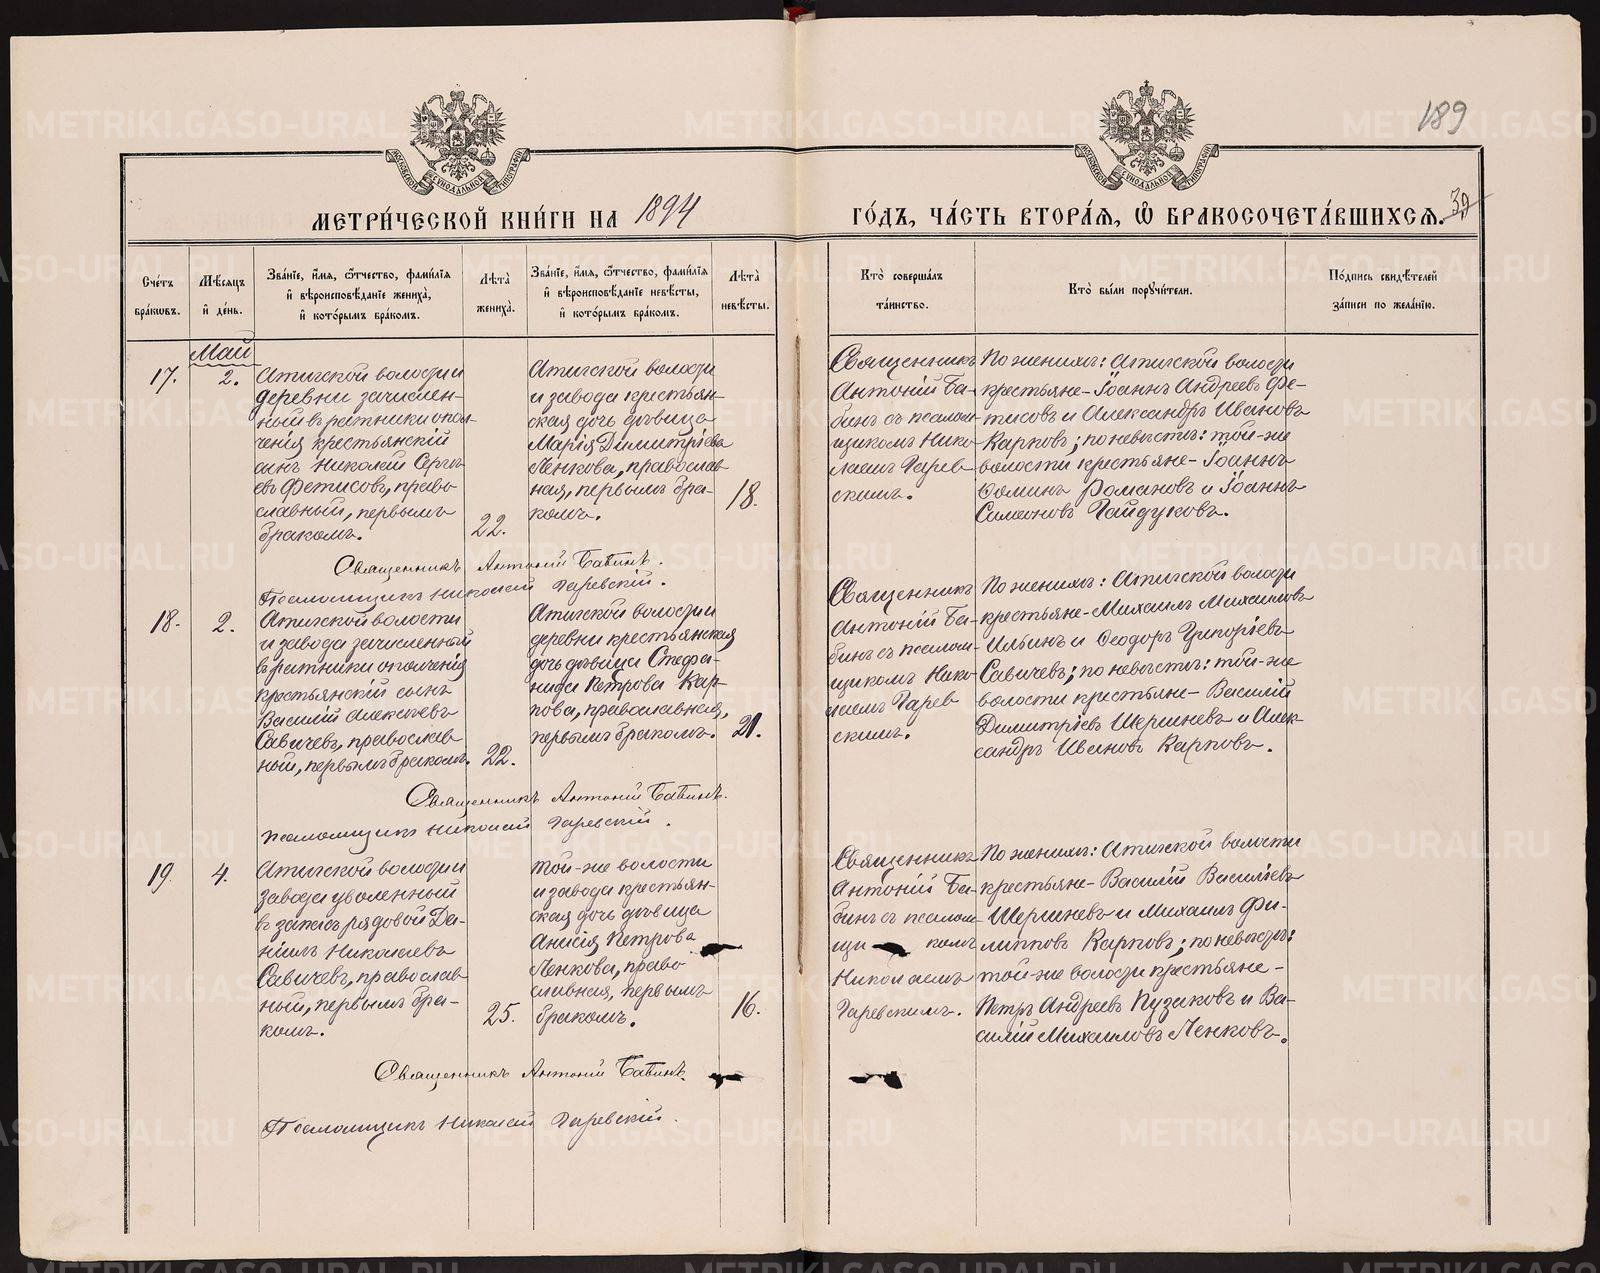 189
МЕТРИЧЕСКОЙ КНИГИ НА 1894
ГОДЪ, ЧАСТЬ ВТОРАЯ, Ѿ БРАКОСОЧЕТАВШИХСЯ.
39
Счетъ браковъ.
Мѣсяцъ и день.
Званіе, имя, отчество, фамилія
и вѣроисповѣданіе жениха,
и которымъ бракомъ.
Лѣта жениха.
Званіе, имя, отчество, фамилія
и вѣроисповѣданіе невѣсты,
и которымъ бракомъ.
Лѣта невѣсты.
Кто совершалъ
таинство.
Кто были поручители.
Подпись свидѣтелей
записи по желанію.
Май
17.
2.
Атигской волости и
деревни зачислен-
ный в ратники опол-
ченія крестьянскій
сынъ Николай Сергѣ-
евъ Фетисовъ, право-
славный, первымъ
бракомъ.
22.
Атигской волости
и завода крестьян-
ская дочь дѣвица
Марія Димитріева
Пенкова, православ-
ная, первымъ бра-
комъ.
18.
Священникъ
Антоній Ба-
бинъ съ псалом-
щикомъ Нико-
лаемъ Гарев-
скимъ.
По женихѣ: Атигской волости
крестьяне - Іоаннъ Андреевъ Фе-
тисовъ и Александръ Ивановъ
Карповъ; по невѣстѣ: той-же
волости крестьяне - Іоаннъ
Ѳоминъ Романовъ и Іоаннъ
Симеоновъ Гайдуковъ.
Священникъ Антоній Бабинъ.
Псаломщикъ Николай Гаревскій.
18.
2.
Атигской волости
и завода зачисленный
въ ратники ополченія
крестьянскій сынъ
Василій Алексѣевъ
Савичевъ, православ-
ный, первымъ бракомъ.
22.
Атигской волости и
деревни крестьянская
дочь дѣвица Стефа-
нида Петрова Кар-
пова, православная,
первымъ бракомъ.
21.
Священникъ
Антоній Ба-
бинъ съ псалом-
щикомъ Нико-
лаемъ Гарев-
скимъ.
По женихѣ: Атигской волости
крестьяне - Михаилъ Михаиловъ
Ильинъ и Ѳеодоръ Григоріевъ
Савичевъ; по невѣстѣ: той-же
волости крестьяне - Василій
Димитріевъ Шершневъ и Алек-
сандръ Ивановъ Карповъ.
Священникъ Антоній Бабинъ.
Псаломщикъ Николай Гаревскій.
19.
4.
Атигской волости и
завода уволенный
въ запасъ рядовой Да-
ніилъ Николаевъ
Савичевъ, православ-
ный, первымъ бра-
комъ.
25.
Той-же волости
и завода крестьян-
ская дочь дѣвица
Анисія Петрова
Пенкова, право-
славная, первымъ
бракомъ.
16.
Священникъ
Антоній Ба-
бинъ съ псалом-
щи комъ
Николаемъ
Гаревскимъ.
По женихѣ: Атигской волости
крестьяне - Василій Василіевъ
Шершневъ и Михаилъ Фи-
липповъ Карповъ; по невѣстѣ:
той-же волости крестьяне -
Петръ Андреевъ Пузаковъ и Ва-
силій Михаиловъ Пенковъ.
Священникъ Антоній Бабинъ.
Псаломщикъ Николай Гаревскій.